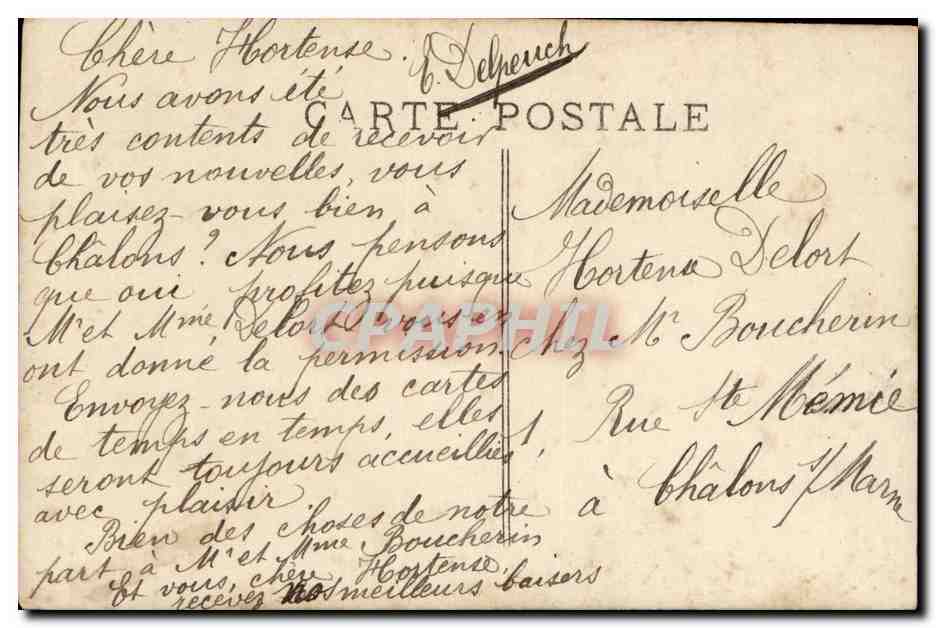 Chère Hortense.
E. Delpeuch
Nous avons été
CARTE POSTALE
très contents de recevoir
de vos nouvelles, vous
plaisez-vous bien à
Châlons? Nous pensons
que oui profitez puisque
Mr et Mme Delort vous en
ont donné la permission.
Envoyez-nous des cartes
de temps en temps, elles
seront toujours accueillies
avec plaisir
Bien des choses de notre
part à Mr et Mme Boucherin
Et vous, chère Hortense,
recevez nos meilleurs baisers
Mademoiselle
Hortense Delort
chez Mr Boucherin
1, Rue Ste Mémie
à Châlons s/Marne
CPAPHIL